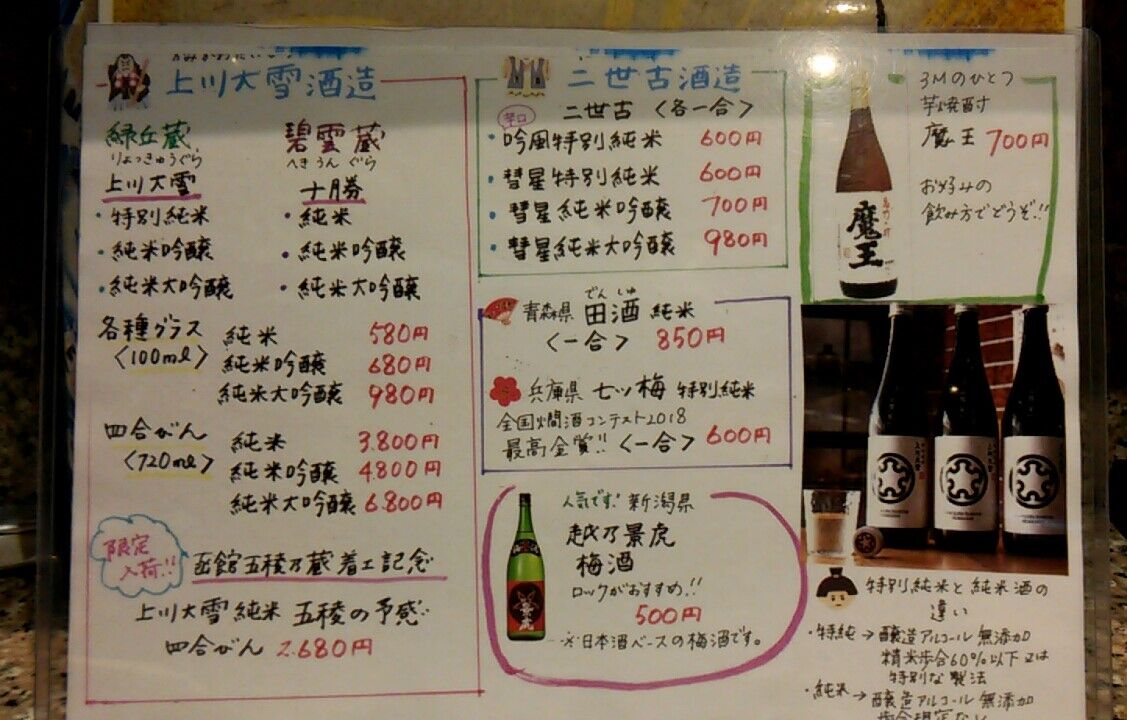 上川大雪酒造
緑丘蔵
りょっきゅうぐら
上川大雪
・特別純米
・純米吟醸
・純米大吟醸
碧雲蔵
へきうんぐら
十勝
・純米
・純米吟醸
・純米大吟醸
各種グラス
〈100ml〉
純米 580円
純米吟醸 680円
純米大吟醸 980円
四合びん
〈720ml〉
純米 3.800円
純米吟醸 4.800円
純米大吟醸 6.800円
限定
入荷!!
函館五稜乃蔵着工記念
上川大雪 純米 五稜の予感
四合びん 2.680円
二世古酒造
辛口
二世古 〈各一合〉
・吟風特別純米 600円
・彗星特別純米 600円
・彗星純米吟醸 700円
・彗星純米大吟醸 980円
でんしゅ
青森県 田酒 純米
〈一合〉 850円
兵庫県 七ッ梅 特別純米
全国燗酒コンテスト2018
最高金賞!! 〈一合〉 600円
人気です! 新潟県
越乃景虎
梅酒
ロックがおすすめ!!
500円
※日本酒ベースの梅酒です。
3Mのひとつ
芋焼酎
魔王 700円
お好みの
飲み方でどうぞ!!
魔王
特別純米と純米酒の
違い
・特純→醸造アルコール無添加
精米歩合60%以下又は
特別な製法
・純米→醸造アルコール無添加